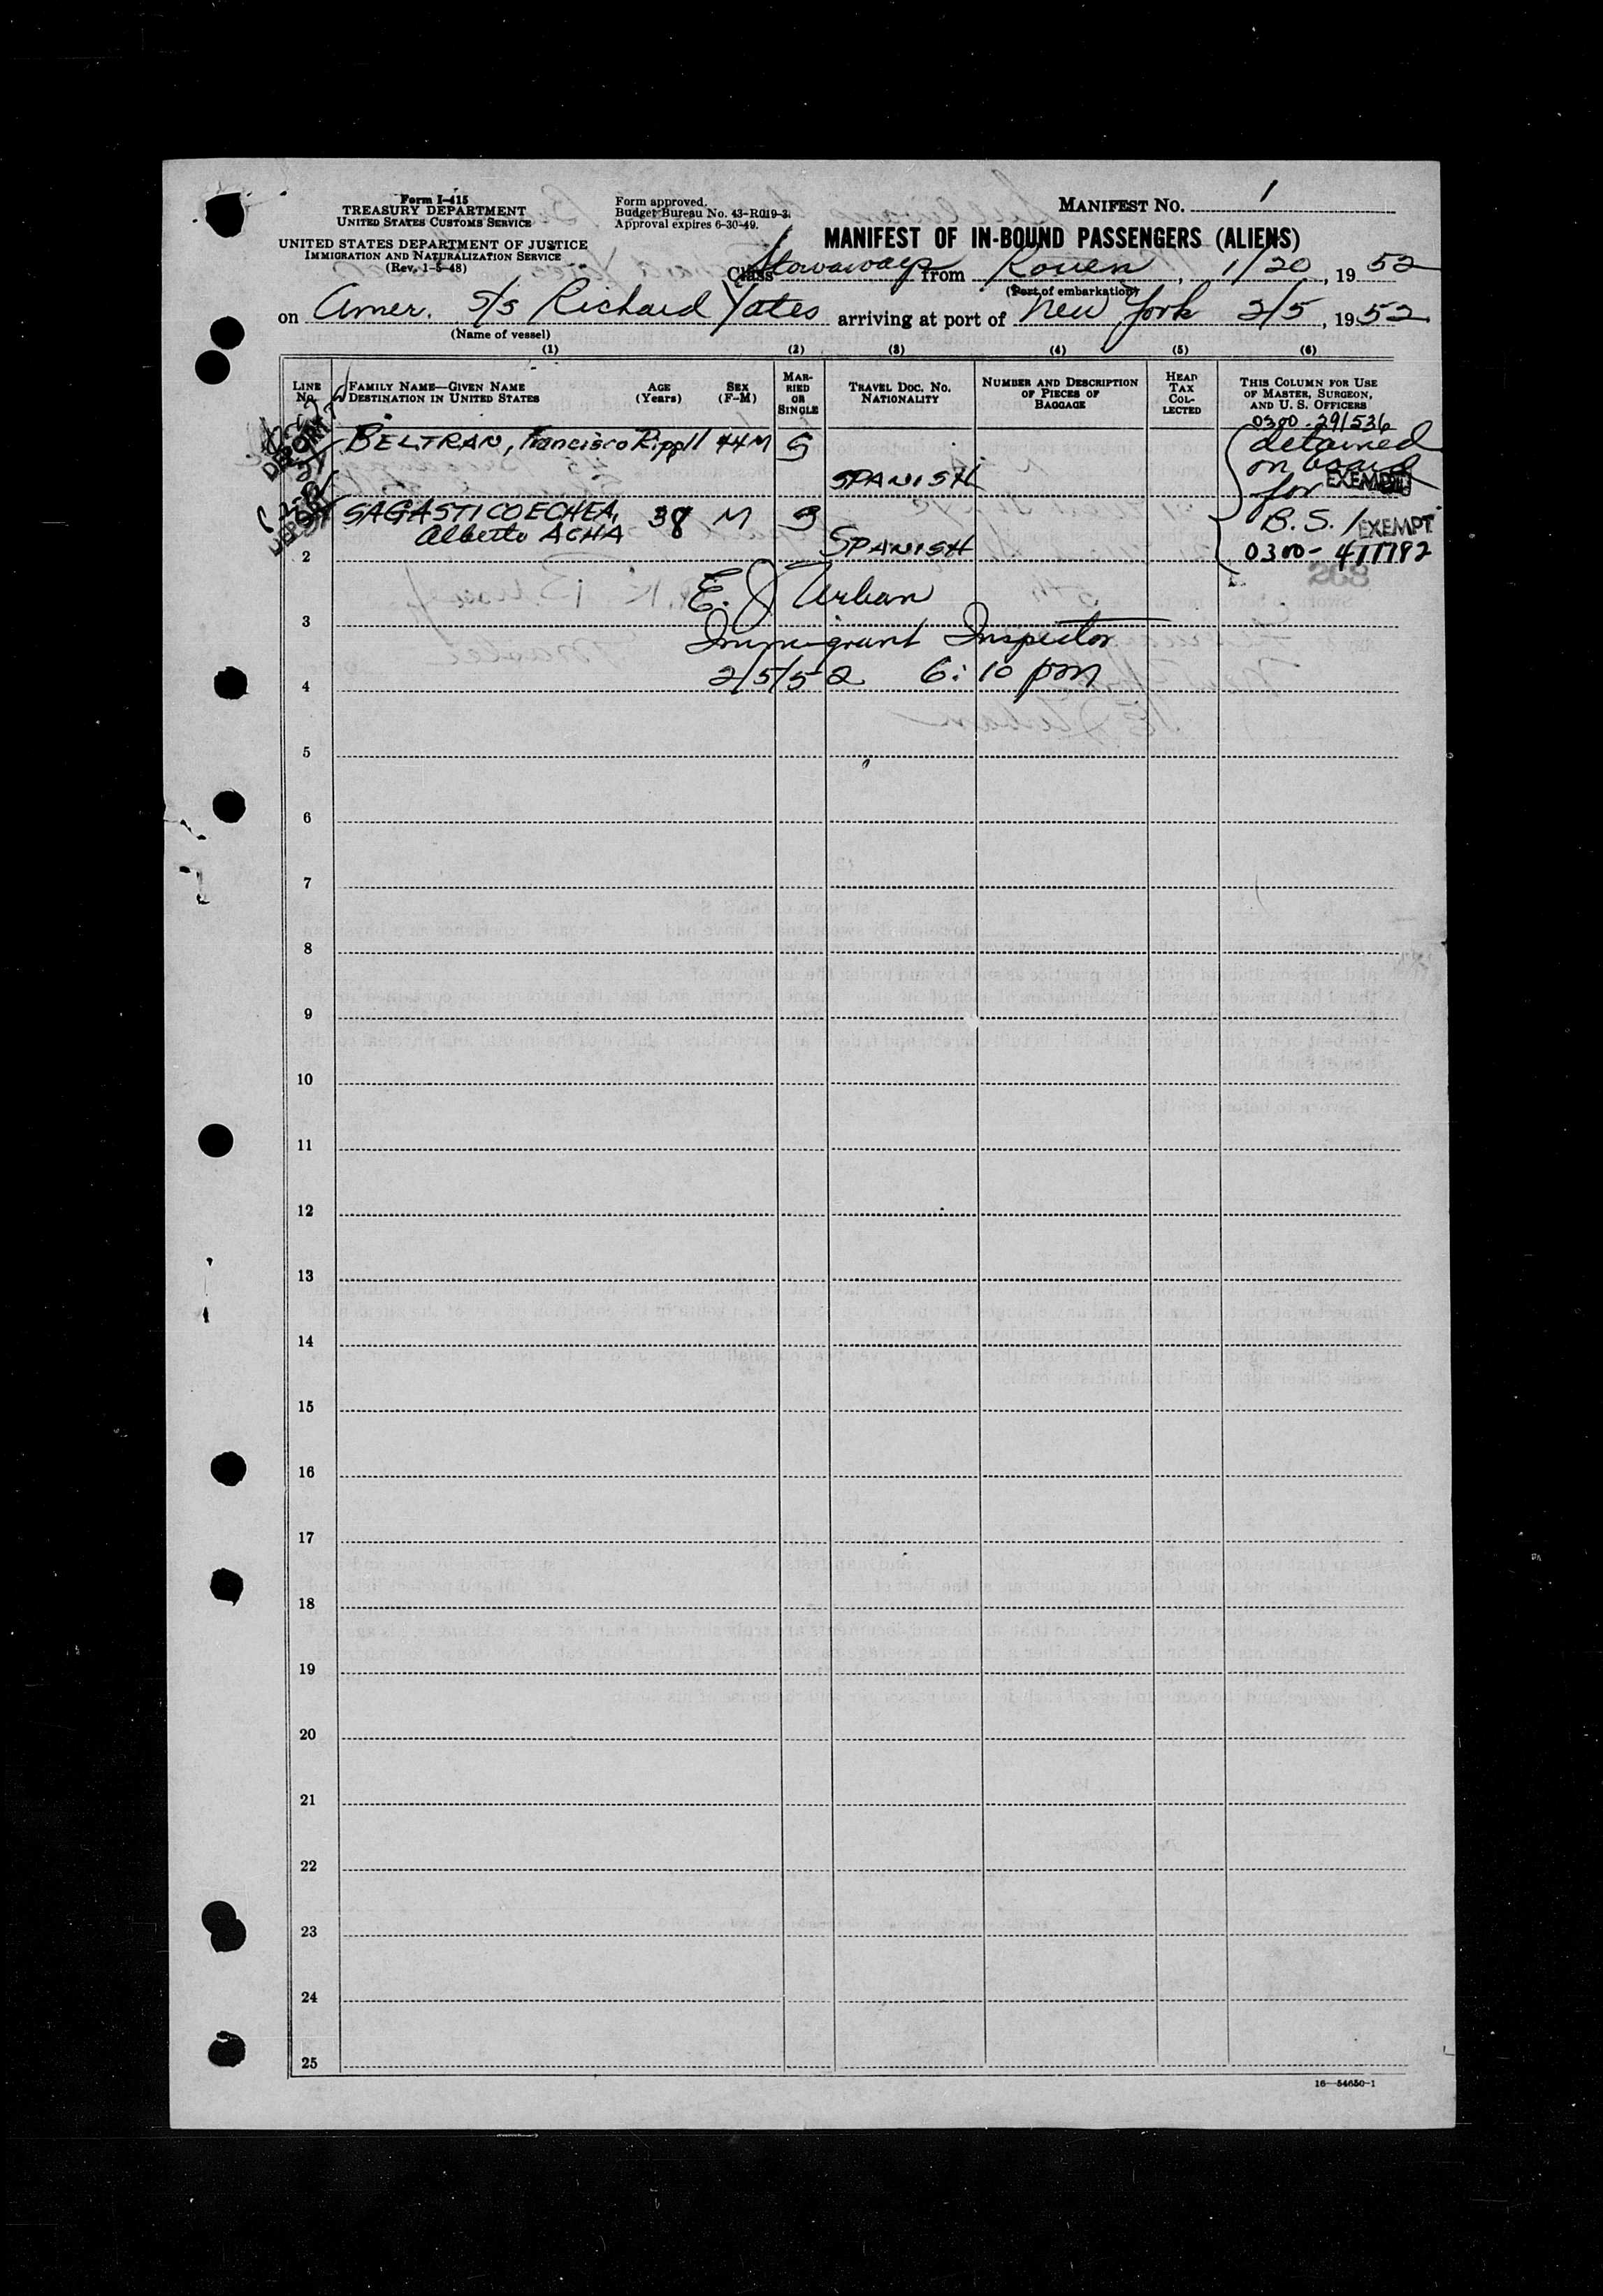 Form I-415
TREASURY DEPARTMENT
UNITED STATES CUSTOMS SERVICE
UNITED STATES DEPARTMENT OF JUSTICE
IMMIGRATION AND NATURALIZATION SERVICE
(Rev. 1-5-48)
Form approved.
Budget Bureau No. 43-R019-3.
Approval expires 6-30-49.
MANIFEST NO. 1
MANIFEST OF IN-BOUND PASSENGERS (ALIENS)
Class Stowaways from Rouen, 1/20, 1952
(Port of embarkation)
on Amer. S/S Richard Yates arriving at port of New York 2/5, 1952
(Name of vessel)
(1) (2) (3) (4) (5) (6)
LINE No. FAMILY NAME—GIVEN NAME DESTINATION IN UNITED STATES AGE (Years) SEX (F-M) MARRIED OR SINGLE TRAVEL DOC. No. NATIONALITY NUMBER AND DESCRIPTION OF PIECES OF BAGGAGE HEAD TAX COLLECTED THIS COLUMN FOR USE OF MASTER, SURGEON, AND U. S. OFFICERS
0300-291536
DEPORT BELTRAN, Francisco Rippll 44 M S detained
on board
SPANISH for EXEMPT
SAGASTICOECHEA, 38 M S B.S.I. EXEMPT
Alberto ACHA SPANISH 0300-411782
2
E. J. Urban
3
Immigrant Inspector
2/5/52 6:10 pm
4
5
6
7
8
9
10
11
12
13
14
15
16
17
18
19
20
21
22
23
24
25
16—54650-1